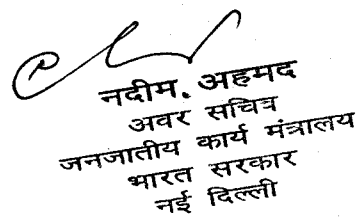 नदीम. अहमद
अवर सचित्र
जनजातीय कार्य मंत्रालय
भारत सरकार
नई दिल्ली